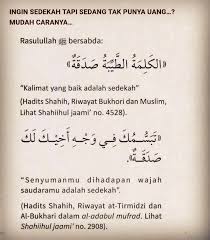 INGIN SEDEKAH TAPI SEDANG TAK PUNYA UANG...?
MUDAH CARANYA...
Rasulullah ﷺ bersabda:
«الْكَلِمَةُ الطَّيِّبَةُ صَدَقَةٌ»
“Kalimat yang baik adalah sedekah”
(Hadits Shahih, Riwayat Bukhori dan Muslim,
Lihat Shahiihul jaami’ no. 4528).
«تَبَسُّمُكَ فِي وَجْهِ أَخِيْكَ لَكَ
صَدَقَةٌ».
“Senyumanmu dihadapan wajah
saudaramu adalah sedekah”.
(Hadits Shahih, Riwayat at-Tirmidzi dan
Al-Bukhari dalam al-adabul mufrad. Lihat
Shahiihul jaami’ no. 2908).